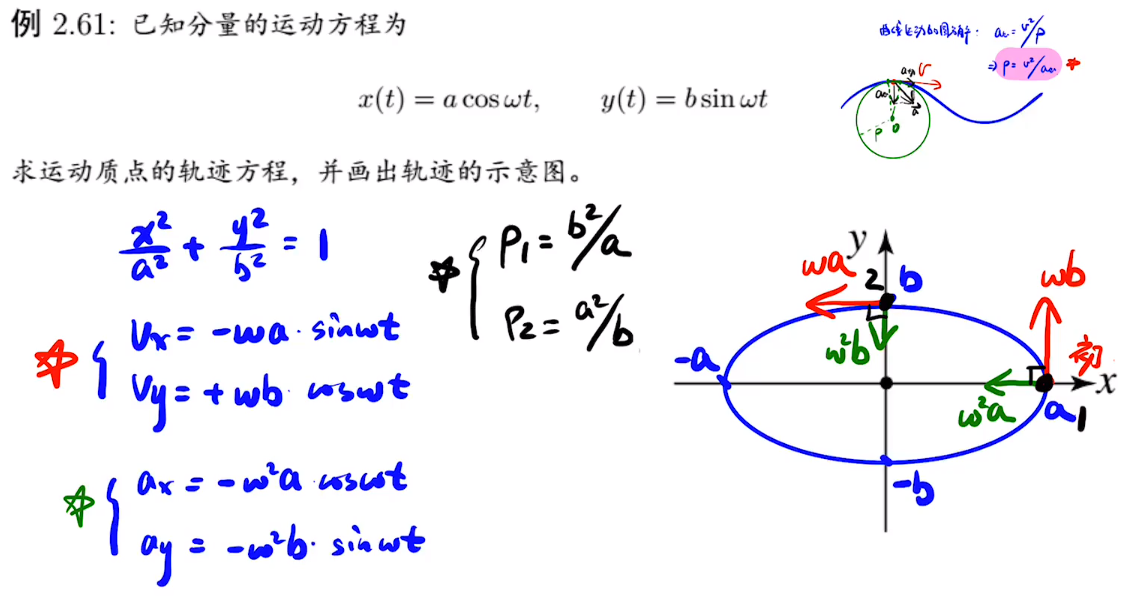 例 2.61: 已知分量的运动方程为
x(t) = a cos ωt, y(t) = b sin ωt
求运动质点的轨迹方程，并画出轨迹的示意图。
a_n = v²/ρ
⇒ ρ = v²/a_n
v
a
ρ
O
x²/a² + y²/b² = 1
Vx = -ωa · sinωt
Vy = +ωb · cosωt
ax = -ω²a · cosωt
ay = -ω²b · sinωt
ρ₁ = b²/a
ρ₂ = a²/b
y
ωa
2
b
ωb
ω²b
初
-a
ω²a
a
1
x
-b